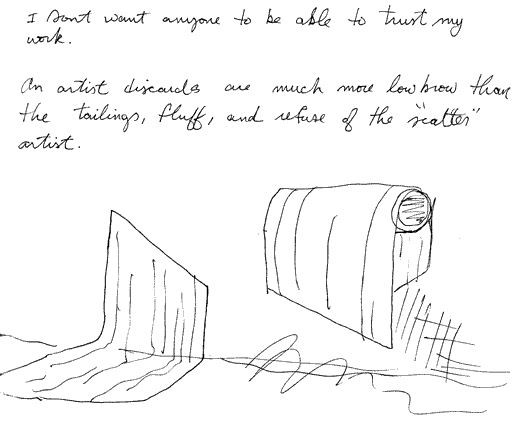 I dont want anyone to be able to trust my
work.
An artist discards are much more lowbrow than
the tailings, fluff, and refuse of the "scatter"
artist.